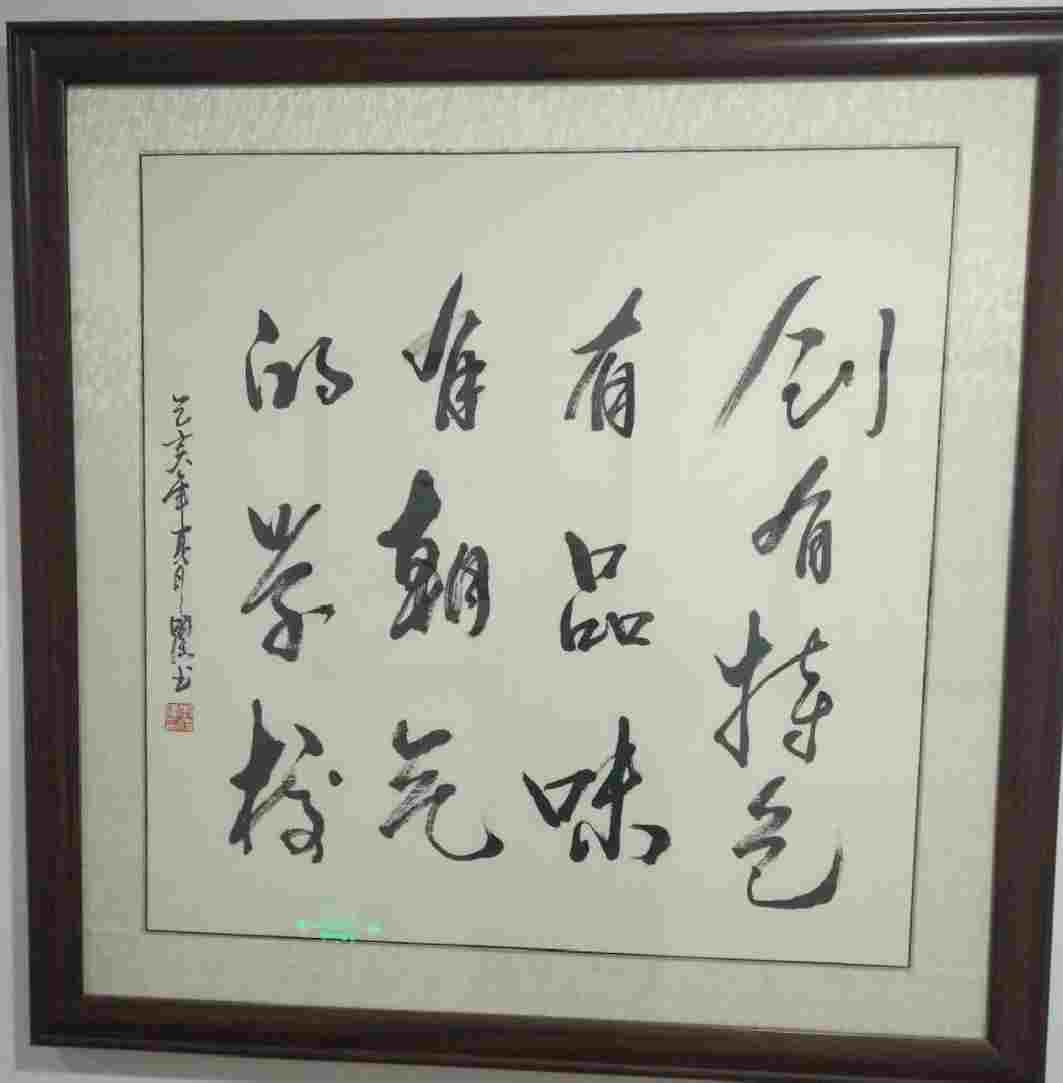 创有特色
有品味
有朝气
的学校
己亥年夏月书